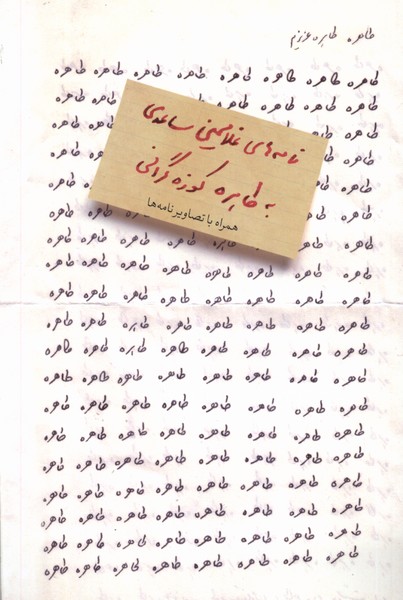 طاهره طاهره عزیزم
طاهره طاهره طاهره طاهره طاهره طاهره طاهره طاهره
طاهره طاهره طاهره طاهره طاهره
طاهره طاهره طاهره
نامه‌های غلامحسین ساعدی
طاهره طاهره طاهره
به طاهره کوزه‌گرانی
طاهره طاهره طاهره
همراه با تصاویر نامه‌ها
طاهره طاهره طاهره طاهره
طاهره طاهره طاهره طاهره
طاهره طاهره طاهره طاهره طاهره طاهره طاهره طاهره
طاهره طاهره طاهره طاهره طاهره طاهره طاهره طاهره
طاهره طاهره طاهره طاهره طاهره طاهره طاهره طاهره
طاهره طاهره طاهره طاهره طاهره طاهره طاهره طاهره
طاهره طاهره طاهره طاهره طاهره طاهره طاهره طاهره
طاهره طاهره طاهره طاهره طاهره طاهره طاهره طاهره
طاهره طاهره طاهره طاهره طاهره طاهره طاهره طاهره
طاهره طاهره طاهره طاهره طاهره طاهره طاهره طاهره
طاهره طاهره طاهره طاهره طاهره طاهره طاهره طاهره
طاهره طاهره طاهره طاهره طاهره طاهره طاهره طاهره
طاهره طاهره طاهره طاهره طاهره طاهره طاهره طاهره
طاهره طاهره طاهره طاهره طاهره طاهره طاهره طاهره